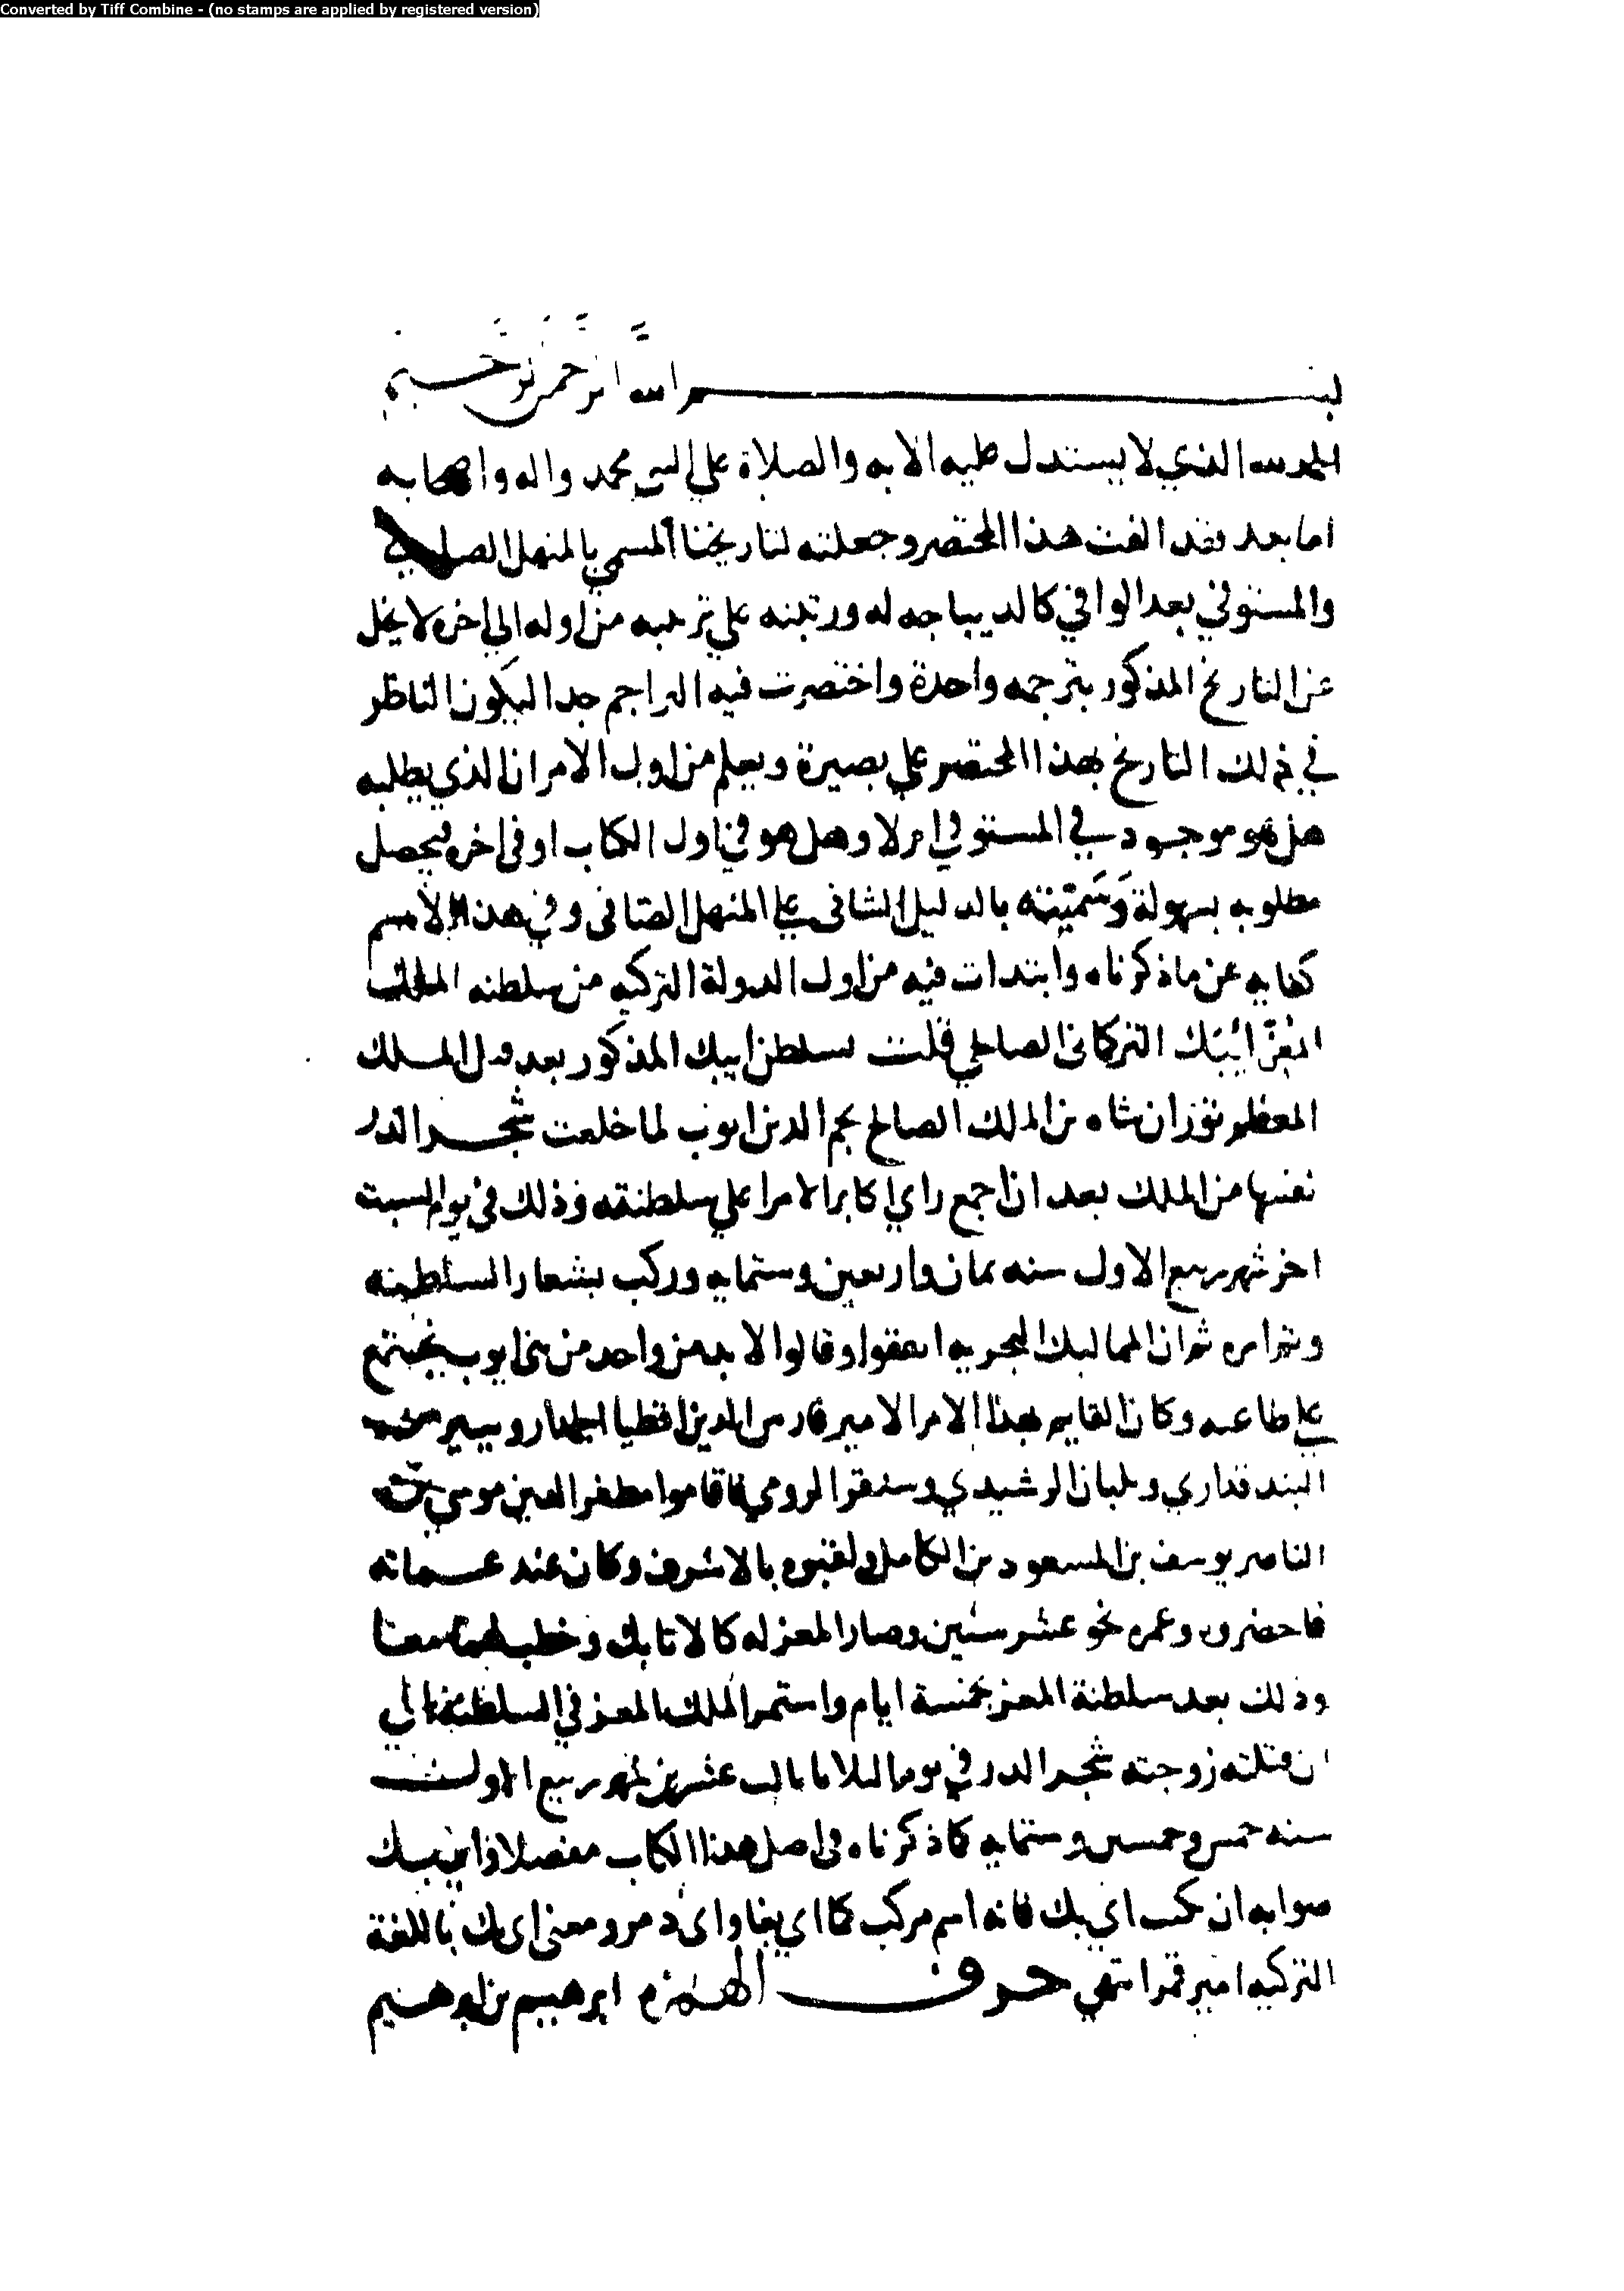 Converted by Tiff Combine - (no stamps are applied by registered version)
بسم الله الرحمن الرحيم
الحمد لله الذي لا يستدل عليه الا به والصلاة علي النبي محمد واله واصحابه
اما بعد فقد الفت هذا المختصر وجعلته لتاريخنا المسمي بالمنهل الصافي
والمستوفي بعد الوافي كالديباجه له ورتبته علي ترتيبه من اوله الي اخره لا يخل
عن التاريخ المذكور بترجمه واحدة واختصرت فيه التراجم جدا ليكون الناظر
في ذلك التاريخ بهذا المختصر علي بصيرة ويعلم من اول الامر ان الذي يطلبه
هل هو موجود في المستوفي ام لا وهل هو في اول الكتاب او في اخره فيحصل
مطلوبه بسهولة وَسَمّيته بالدليل الشافى على المنهل الصافى وفي هذا الاسم
كفايه عن ماذكرناه وابتدات فيه من اول الدولة التركيه من سلطنه الملك
المعزّ ايْبَك التركمانى الصالحي قلت تسلطن ايبك المذكور بعد قتل الملك
المعظم توران شاه بن الملك الصالح نجم الدين ايوب لما خلعت شجر الدر
نفسها من الملك بعد ان اجمع راي اكابر الامرا علي سلطنته وذلك في يوم السبت
اخر شهر ربيع الاول سنه ثمان واربعين وستمايه وركب بشعار السلطنه
وتم امره ثم ان المماليك البحريه اتفقوا وقالوا لا بد من واحد من بنى ايوب يجتمع
على طاعته وكان القايم بهذا الامر الامير فارس الدين اقطيا الجمدار وبيبرس
البندقداري وبلبان الرشيدي وسنقر الرومي فاقاموا مظفر الدين موسي بن
الناصر يوسف بن المسعود بن الكامل ولقبوه بالاشرف وكان عند عماته
فاحضروه وعمره نحو عشر سنين وصار المعز له كالاتابك وخطب لهما معا
وذلك بعد سلطنة المعز بخمسة ايام واستمر الملك المعز في السلطنة الي
ان قتلته زوجته شجر الدر في يوم الثلاثا ثالث عشرين شهر ربيع الاول
سنه خمس وخمسين وستمايه كما ذكرناه فى اصل هذا الكتاب مفصلا وايبك
صوابه ان يكتب اي بك فانه اسم مركب كما اي بغا واى دمر ومعنى اى بك باللغة
التركيه امير قمر انتهي حرف الهمزه ابرهيم بن ابرهيم